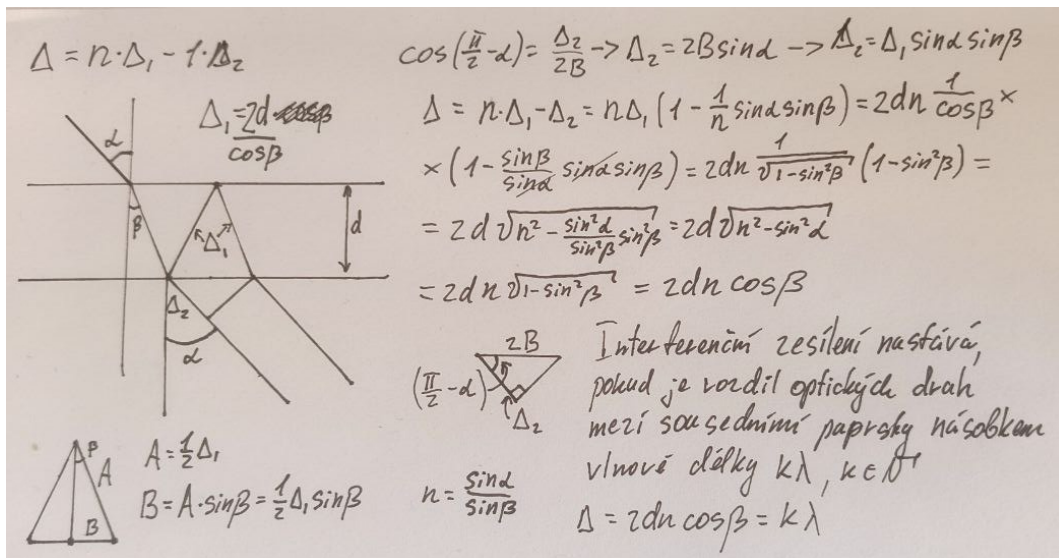 Δ = n·Δ₁ − 1·Δ₂
Δ₁ = 2d / cosβ
α
β
Δ₁
d
Δ₂
α
β
A
B
A = ½Δ₁
B = A·sinβ = ½Δ₁sinβ
cos(π/2 − α) = Δ₂/2B → Δ₂ = 2Bsinα → Δ₂ = Δ₁ sinα sinβ
Δ = n·Δ₁ − Δ₂ = nΔ₁(1 − 1/n sinα sinβ) = 2dn 1/cosβ ×
× (1 − sinβ/sinα sinα sinβ) = 2dn 1/√(1−sin²β) (1−sin²β) =
= 2d √(n² − sin²α/sin²β sin²β) = 2d √(n² − sin²α)
= 2dn √(1−sin²β) = 2dn cosβ
2B
(π/2 − α)
Δ₂
n = sinα/sinβ
Interferenční zesílení nastává,
pokud je rozdíl optických drah
mezi sousedními paprsky násobkem
vlnové délky kλ, k∈N
Δ = 2dn cosβ = kλ